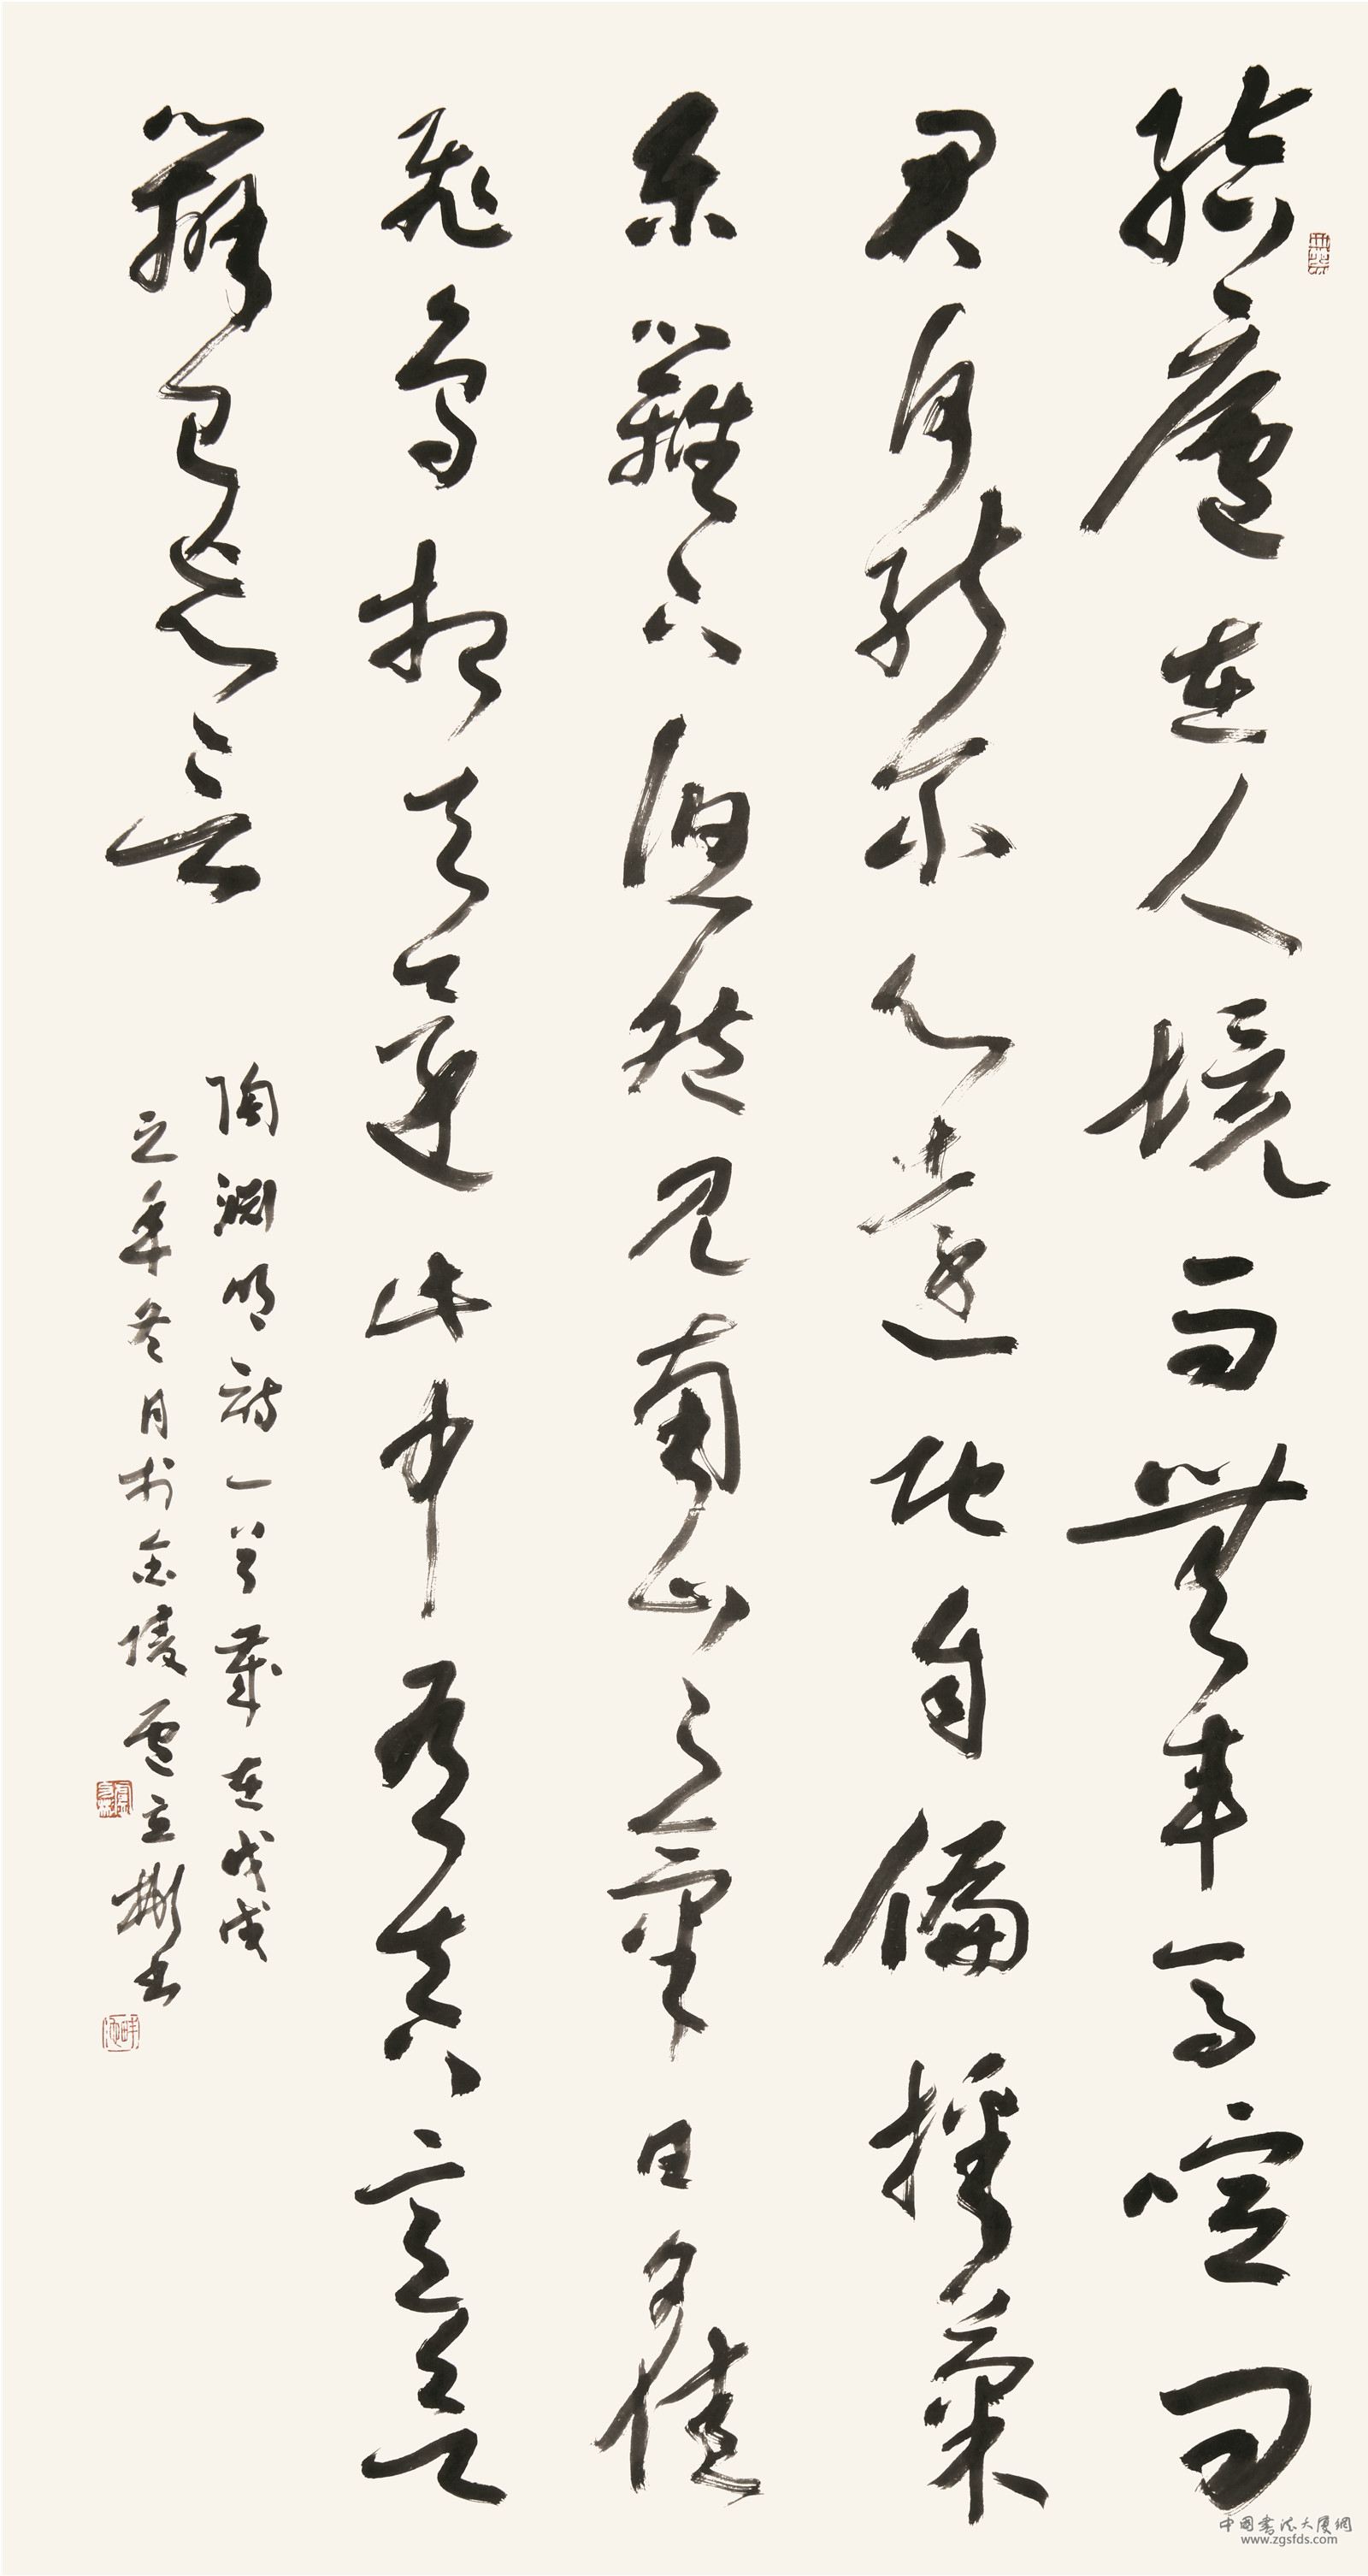 結廬在人境而無車馬喧問
君何能尔心遠地自偏採菊
東籬下悠然見南山々氣日夕佳
飛鳥相與還此中有真意欲
辨已忘言
陶淵明詩一首歲在戊戌
之年冬月於金陵盧立彬书
中國書法大厦網
www.zgsfds.com